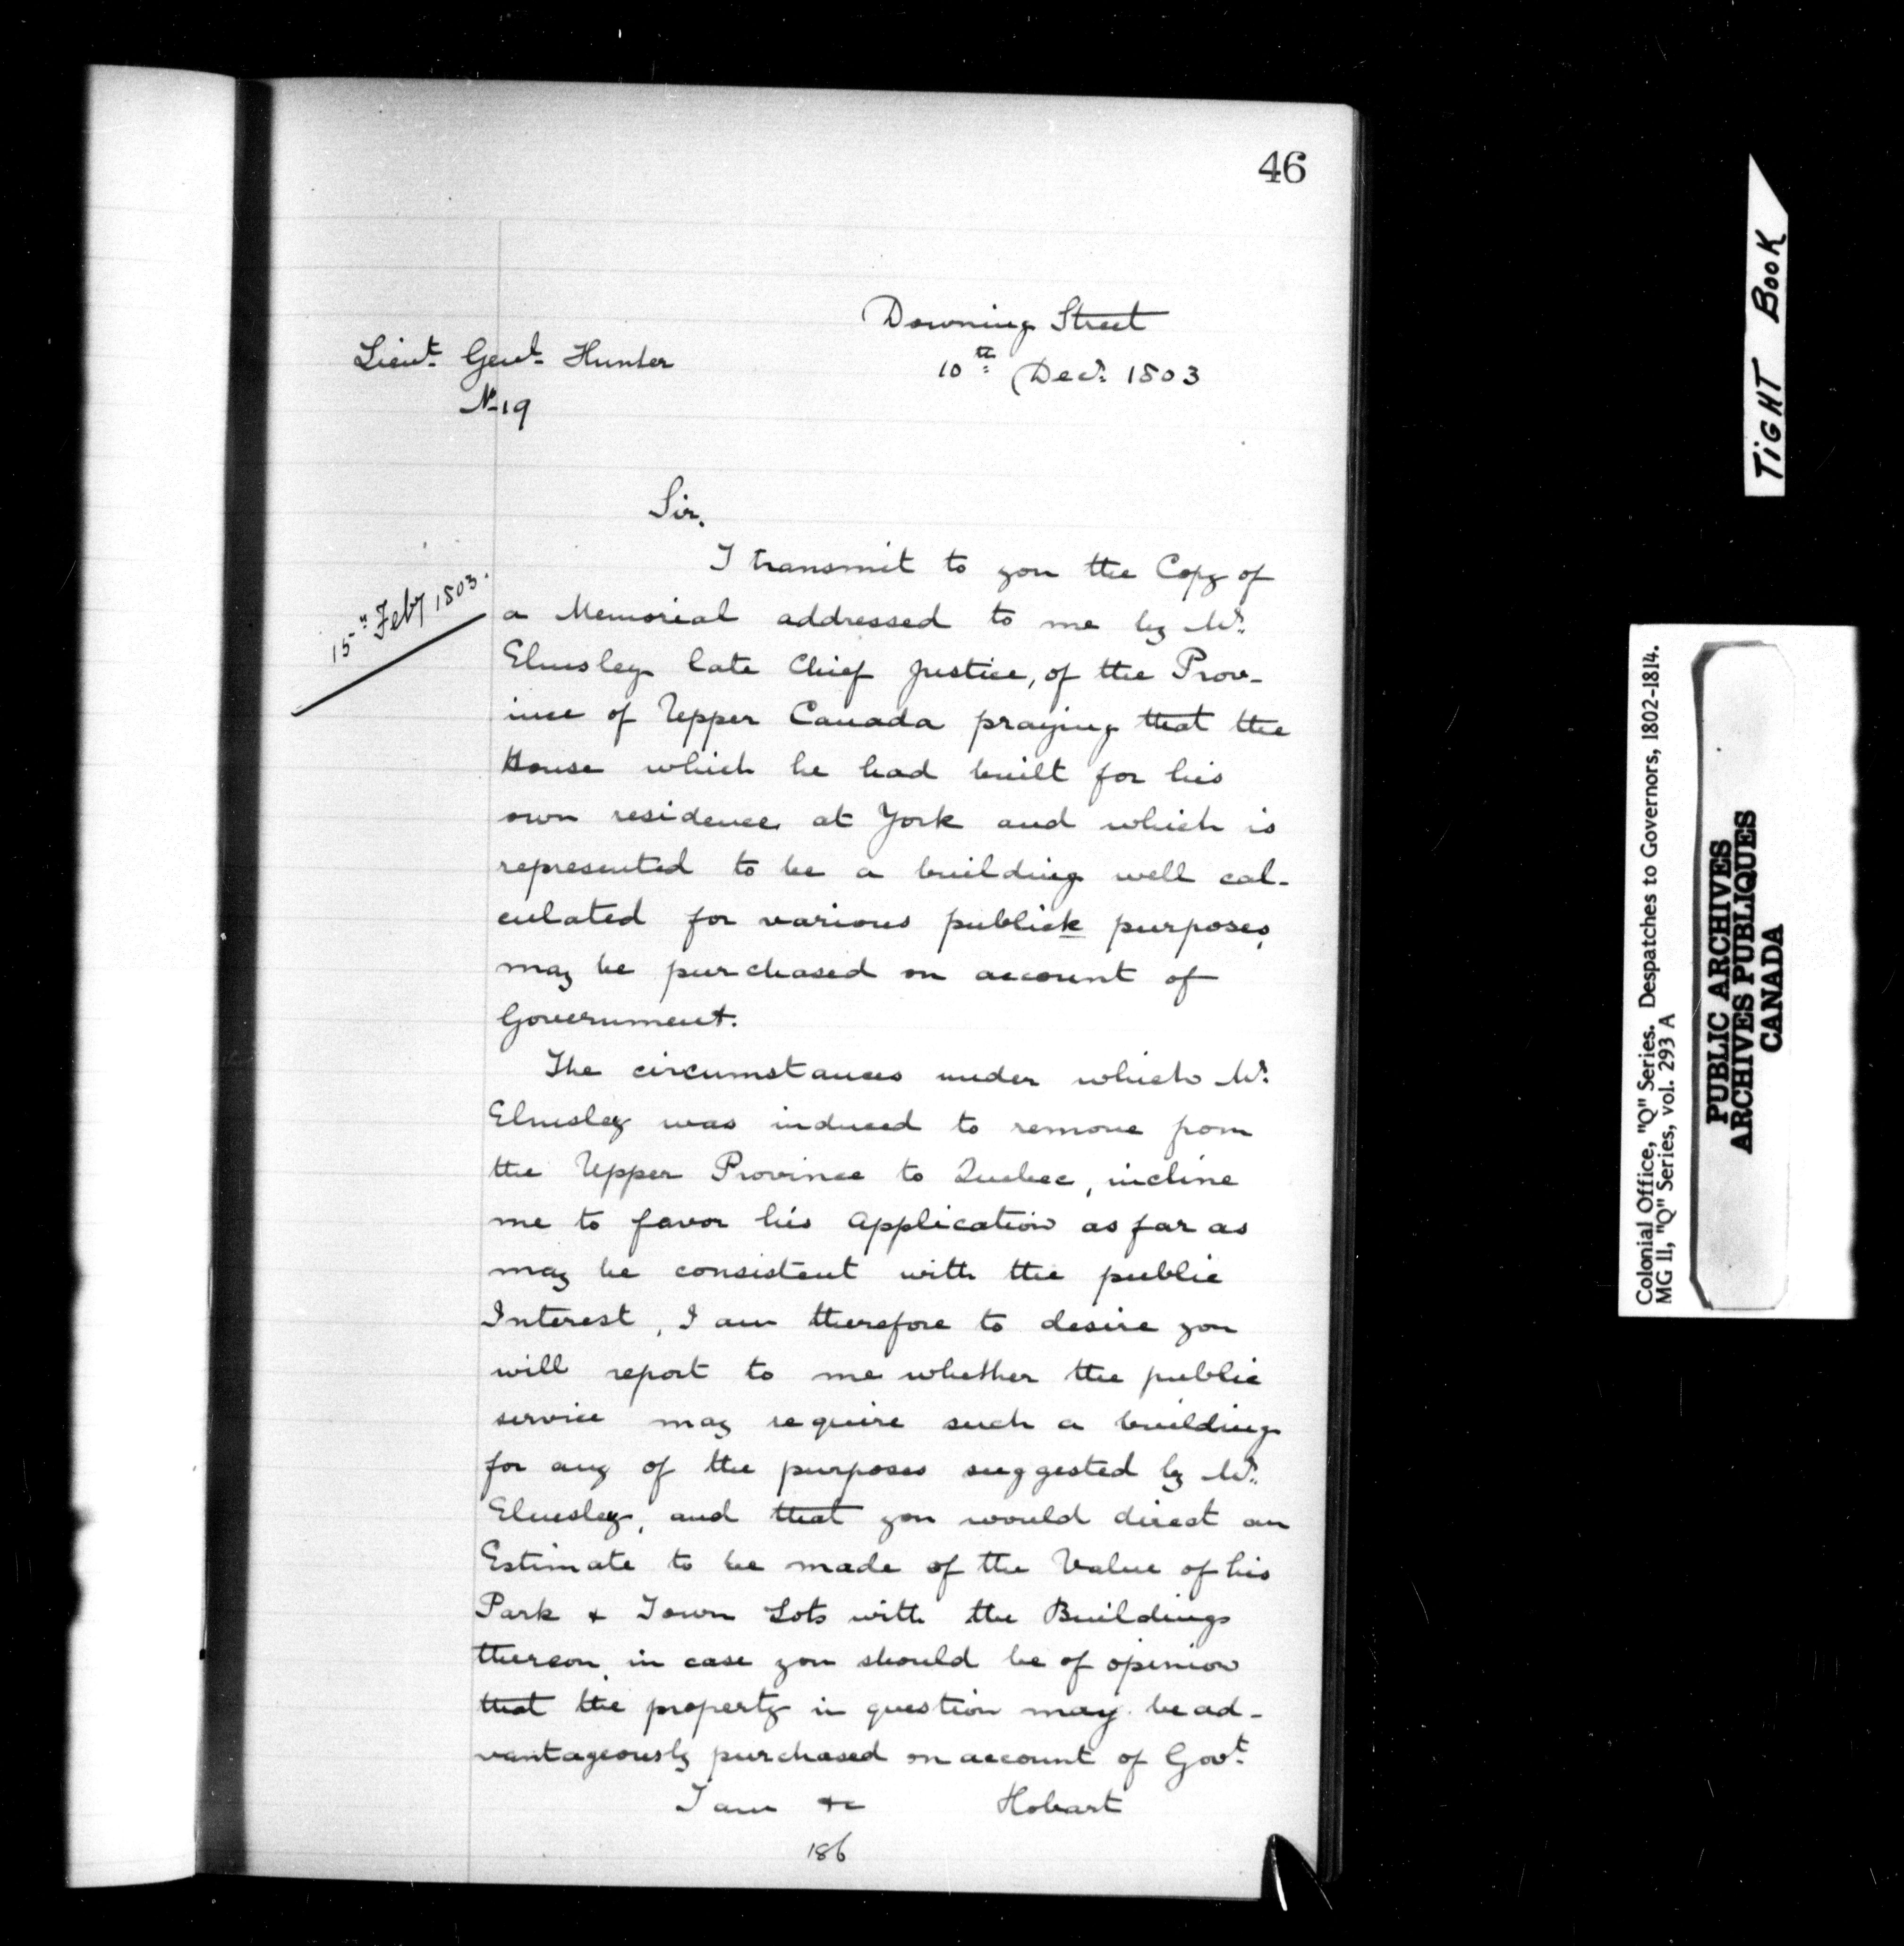 46
Downing Street
Lieut. Genl. Hunter
10th Decr. 1803
No 19
Sir,
15th Feby 1803.
I transmit to you the Copy of
a Memorial addressed to me by Mr.
Elmsley late Chief Justice, of the Prov-
ince of Upper Canada praying that the
House which he had built for his
own residence at York and which is
represented to be a building well cal-
culated for various publick purposes,
may be purchased on account of
Government.
The circumstances under which Mr.
Elmsley was induced to remove from
the Upper Province to Quebec, incline
me to favor his application as far as
may be consistent with the public
Interest, I am therefore to desire you
will report to me whether the public
service may require such a building
for any of the purposes suggested by Mr.
Elmsley, and that you would direct an
Estimate to be made of the Value of his
Park & Town Lots with the Buildings
thereon, in case you should be of opinion
that the property in question may be ad-
vantageously purchased on account of Govt.
I am &c Hobart
186
TIGHT BOOK
Colonial Office, "Q" Series. Despatches to Governors, 1802-1814.
MG II, "Q" Series, vol. 293 A
PUBLIC ARCHIVES
ARCHIVES PUBLIQUES
CANADA